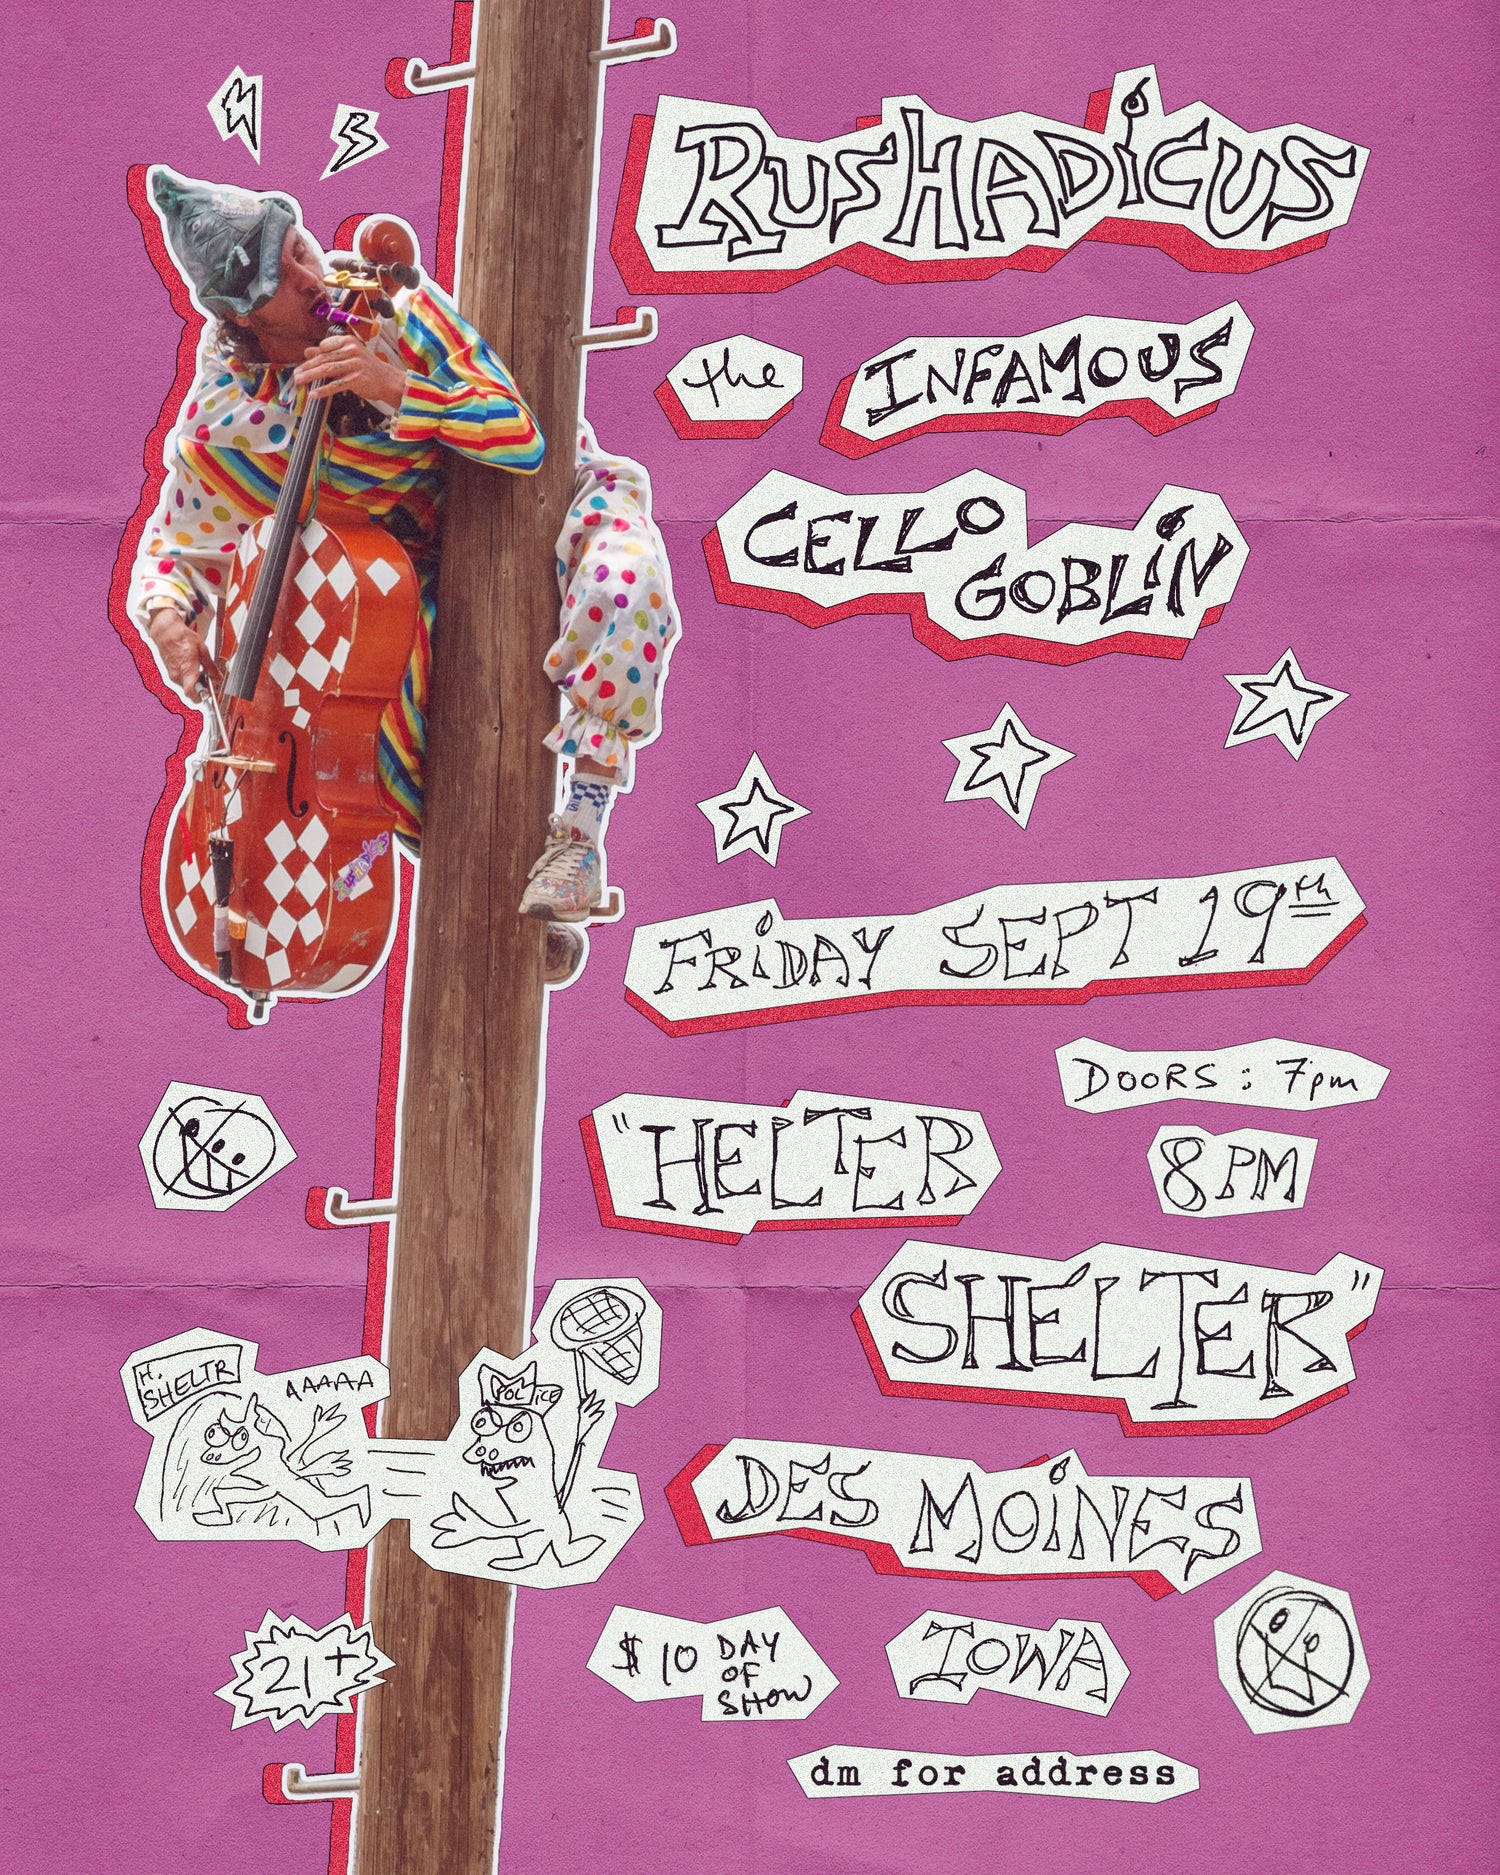 RUSHADiCUS
the INFAMOUS
CELLO
GOBLiN
FRiDAY SEPT 19th
DOORS : 7pm
"HELTER
8 PM
SHELTER"
H. SHELTR
AAAAA
POLICE
DES MOiNES
21+
$10 DAY
OF
SHOW
IOWA
dm for address